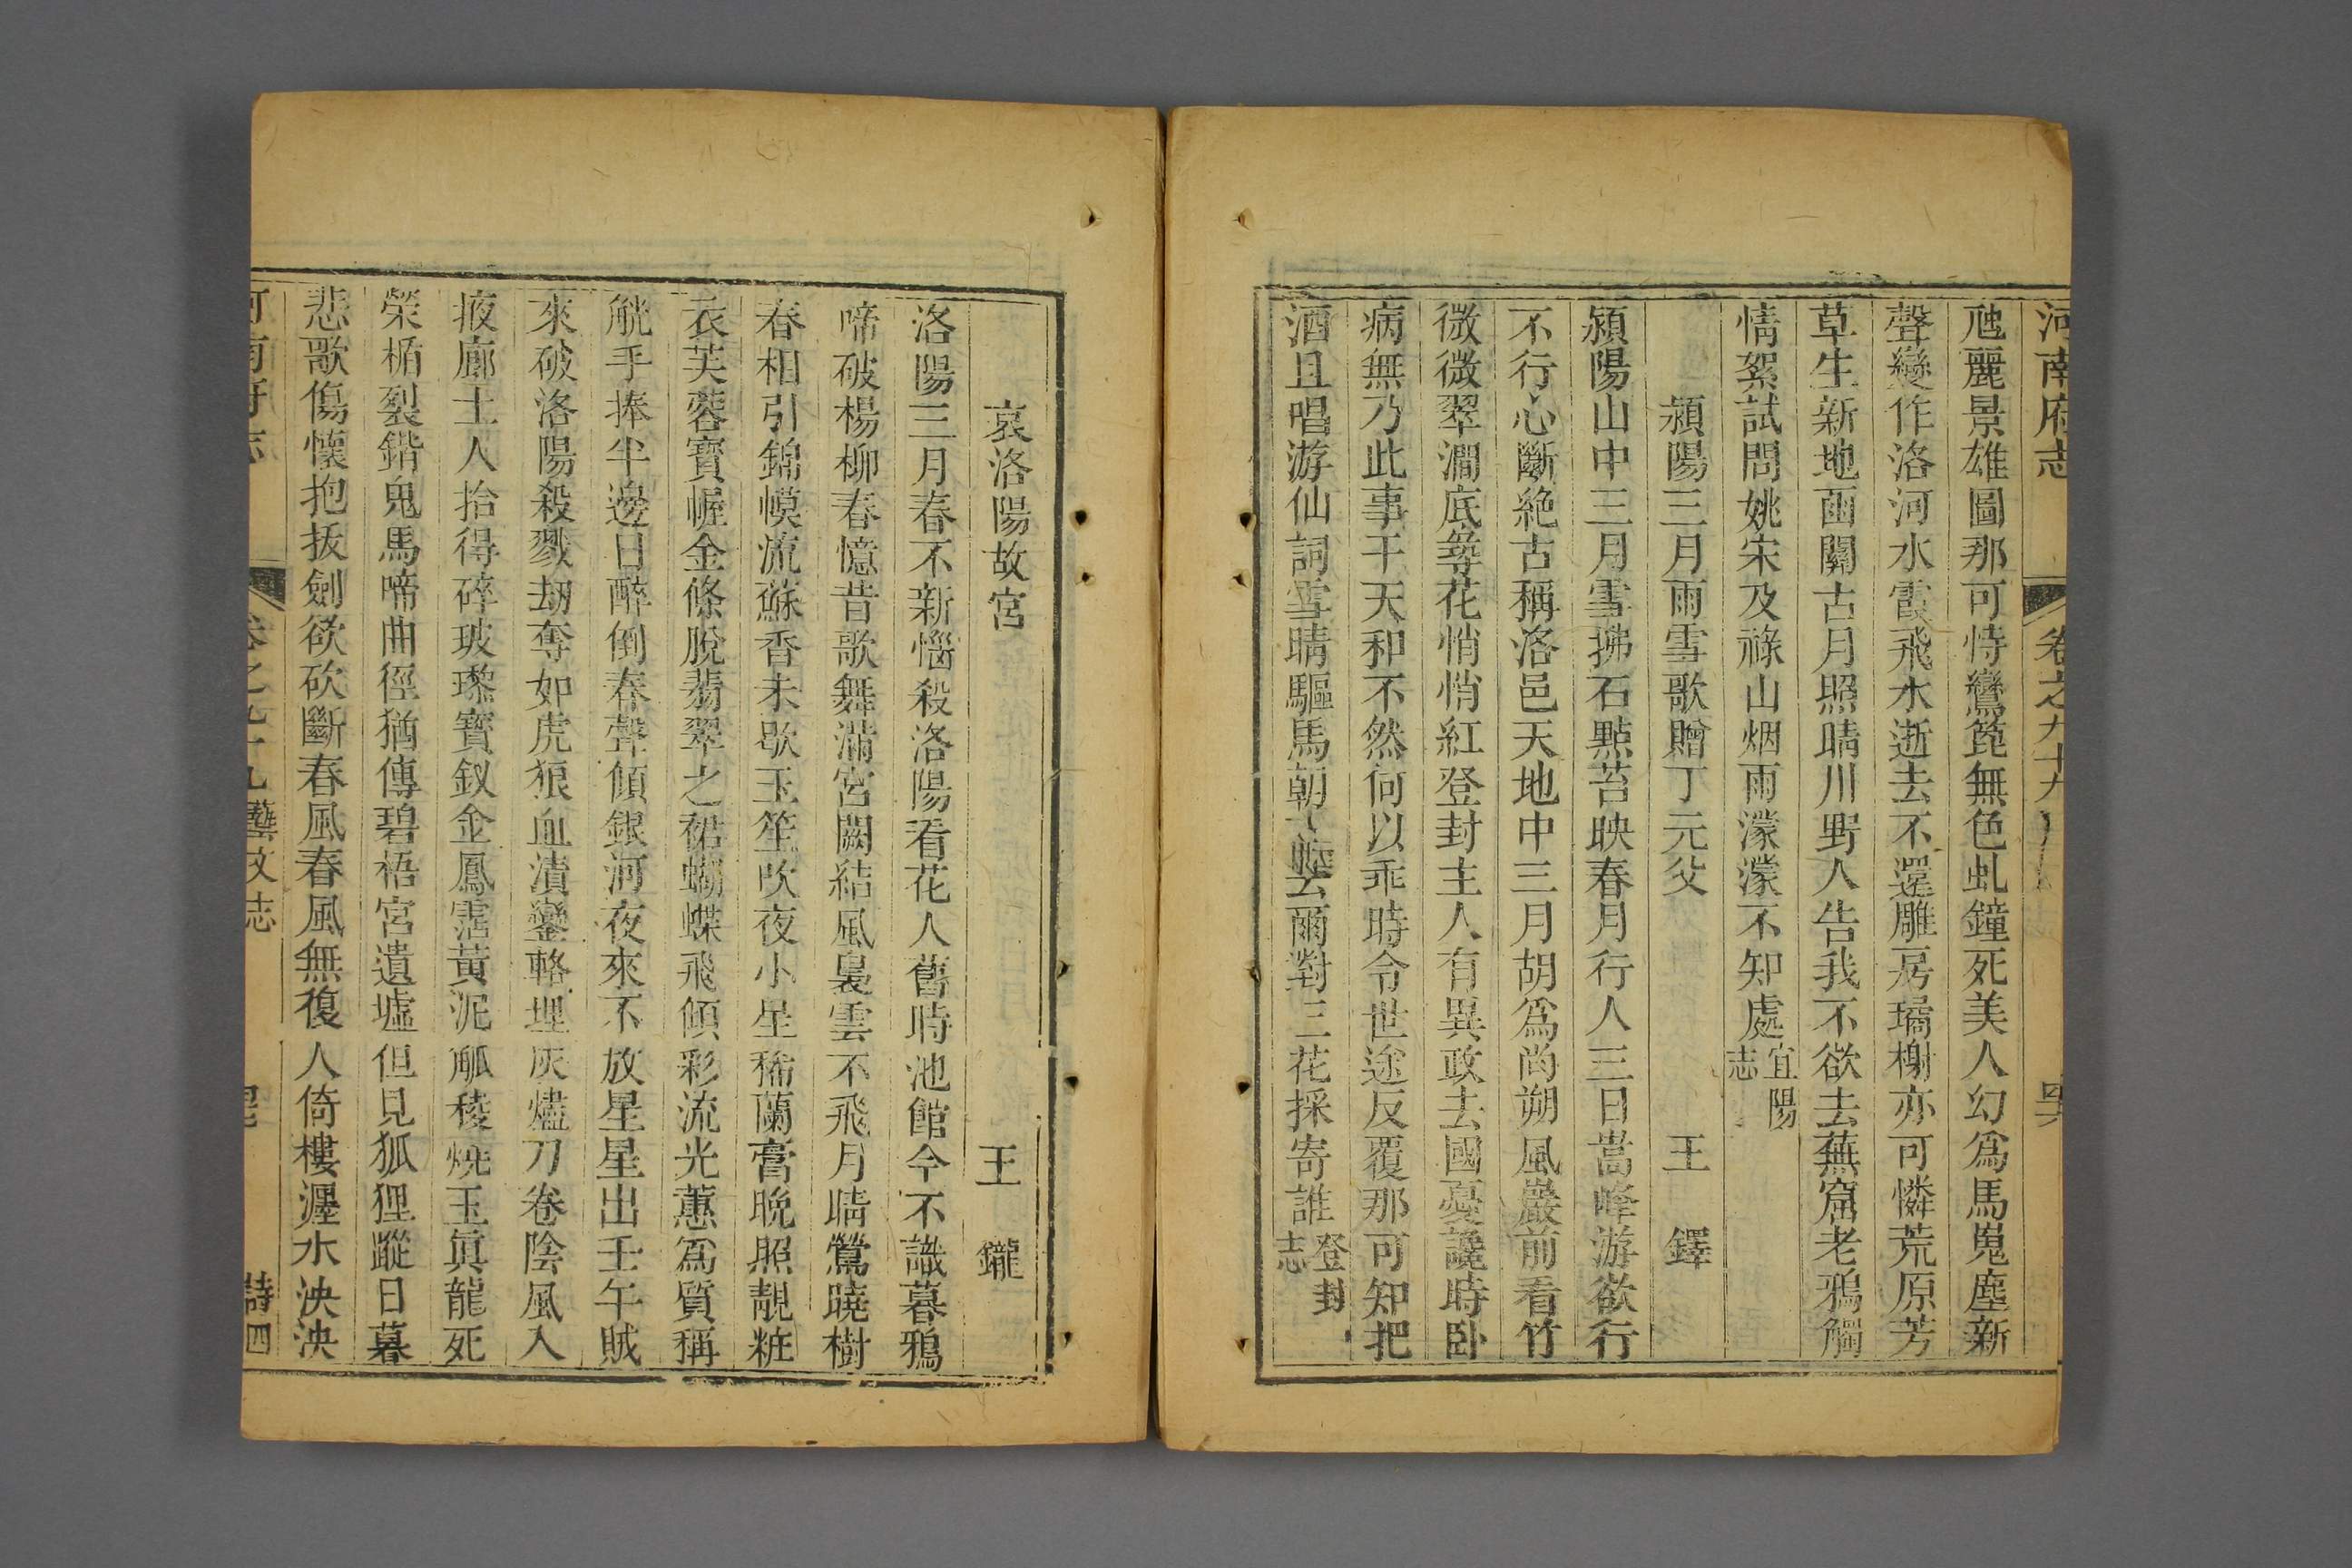 河南府志 卷之九十九
虺麗景雄圖那可恃鸞篦無色虬鐘死美人幻爲馬嵬塵新
聲變作洛河水霞飛水逝去不還雕房璚榭亦可憐荒原芳
草生新地函關古月照晴川野人告我不欲去蕪窟老鴉觸
情絮試問姚宋及祿山烟雨濛濛不知處宜陽志
潁陽三月雨雪歌贈丁元父 王鐸
潁陽山中三月雪拂石點苔映春月行人三日嵩峰游欲行
不行心斷絶古稱洛邑天地中三月胡爲尚朔風巖前看竹
微微翠澗底尋花悄悄紅登封主人有異政去國憂讒時卧
病無乃此事干天和不然何以乖時令世途反覆那可知把
酒且唱游仙詞雪晴驅馬朝去爾對三花採寄誰登封志
哀洛陽故宮 王鑨
洛陽三月春不新惱殺洛陽看花人舊時池館今不識暮鴉
啼破楊柳春憶昔歌舞滿宮闕結風裊雲不飛月晴鶯曉樹
春相引錦幙流蘇香未歇玉笙吹夜小星稀蘭膏晚照靚粧
衣芙蓉寶幄金條脫翡翠之裙蝴蝶飛傾彩流光蕙爲質稱
觥手捧半邊日醉倒春聲傾銀河夜來不放星星出壬午賊
來破洛陽殺戮刼奪如虎狼血漬鑾輅埋灰燼刀卷陰風入
掖廊土人拾得碎玻瓈寶釵金鳳霑黄泥觚稜燒玉眞龍死
榮楯裂鍇鬼馬啼曲徑猶傳碧梧宮遺墟但見狐狸蹤日暮
悲歌傷懷抱拔劍欲砍斷春風春風無復人倚樓瀍水泱泱
河南府志 卷之九十九 藝文志 詩四